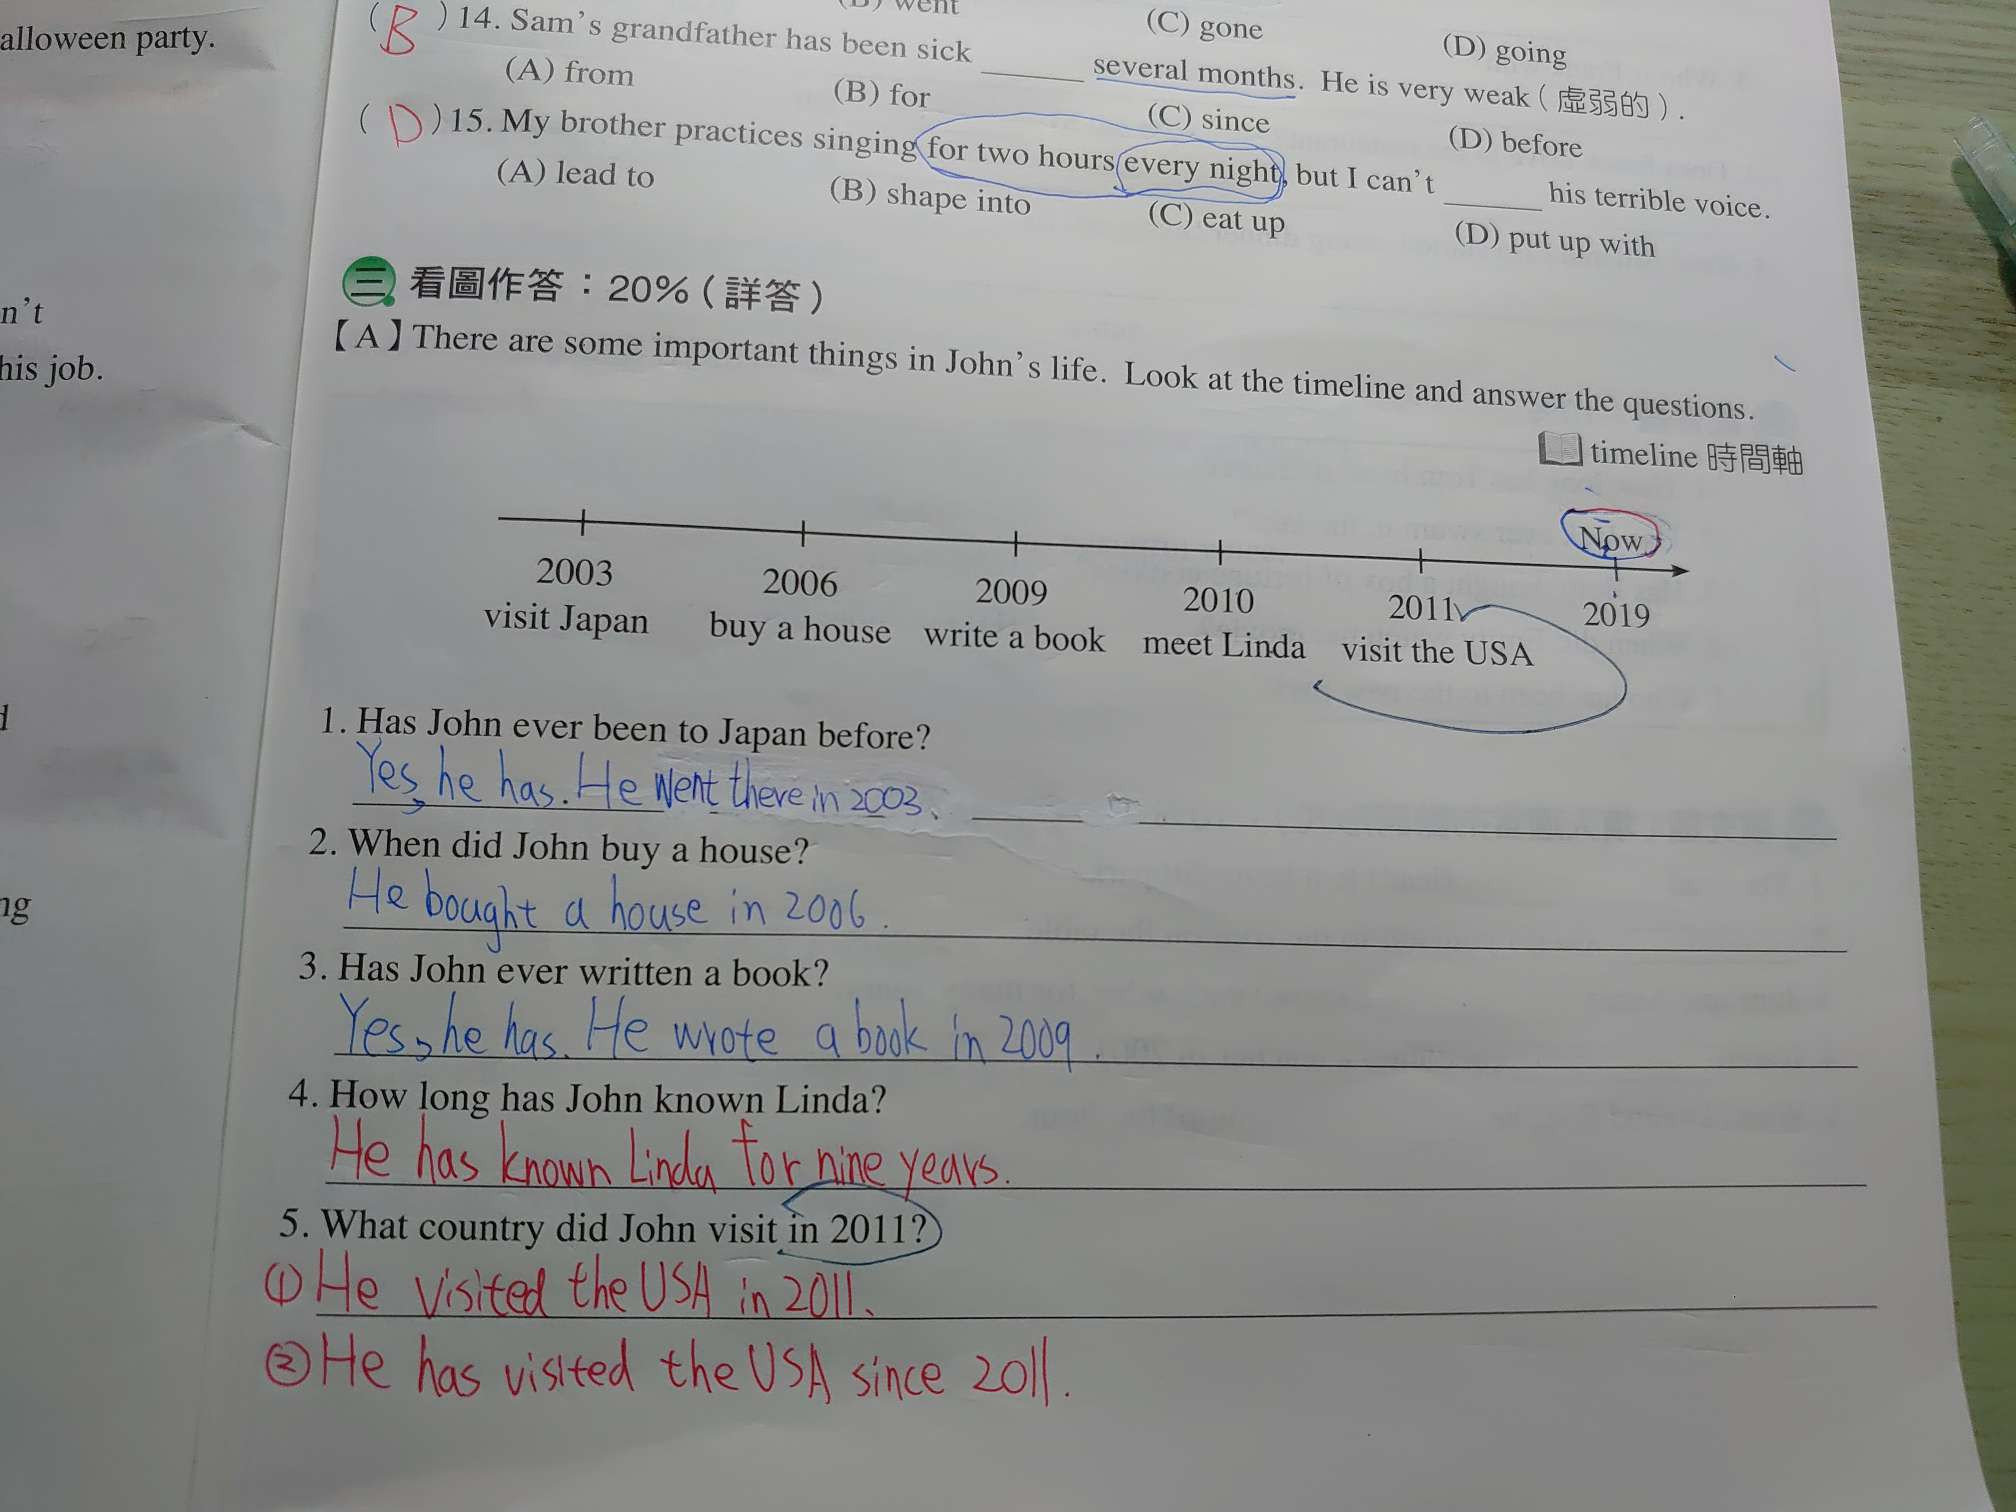 alloween party.
n't
his job.
ng
(B) went (C) gone (D) going
( B )14. Sam's grandfather has been sick ______ several months. He is very weak(虛弱的).
(A) from (B) for (C) since (D) before
( D )15. My brother practices singing for two hours every night, but I can't ______ his terrible voice.
(A) lead to (B) shape into (C) eat up (D) put up with
三 看圖作答：20%（詳答）
【A】There are some important things in John's life. Look at the timeline and answer the questions.
timeline 時間軸
Now
2003 2006 2009 2010 2011 2019
visit Japan buy a house write a book meet Linda visit the USA
1. Has John ever been to Japan before?
Yes, he has. He went there in 2003.
2. When did John buy a house?
He bought a house in 2006.
3. Has John ever written a book?
Yes, he has. He wrote a book in 2009.
4. How long has John known Linda?
He has known Linda for nine years.
5. What country did John visit in 2011?
① He visited the USA in 2011.
② He has visited the USA since 2011.